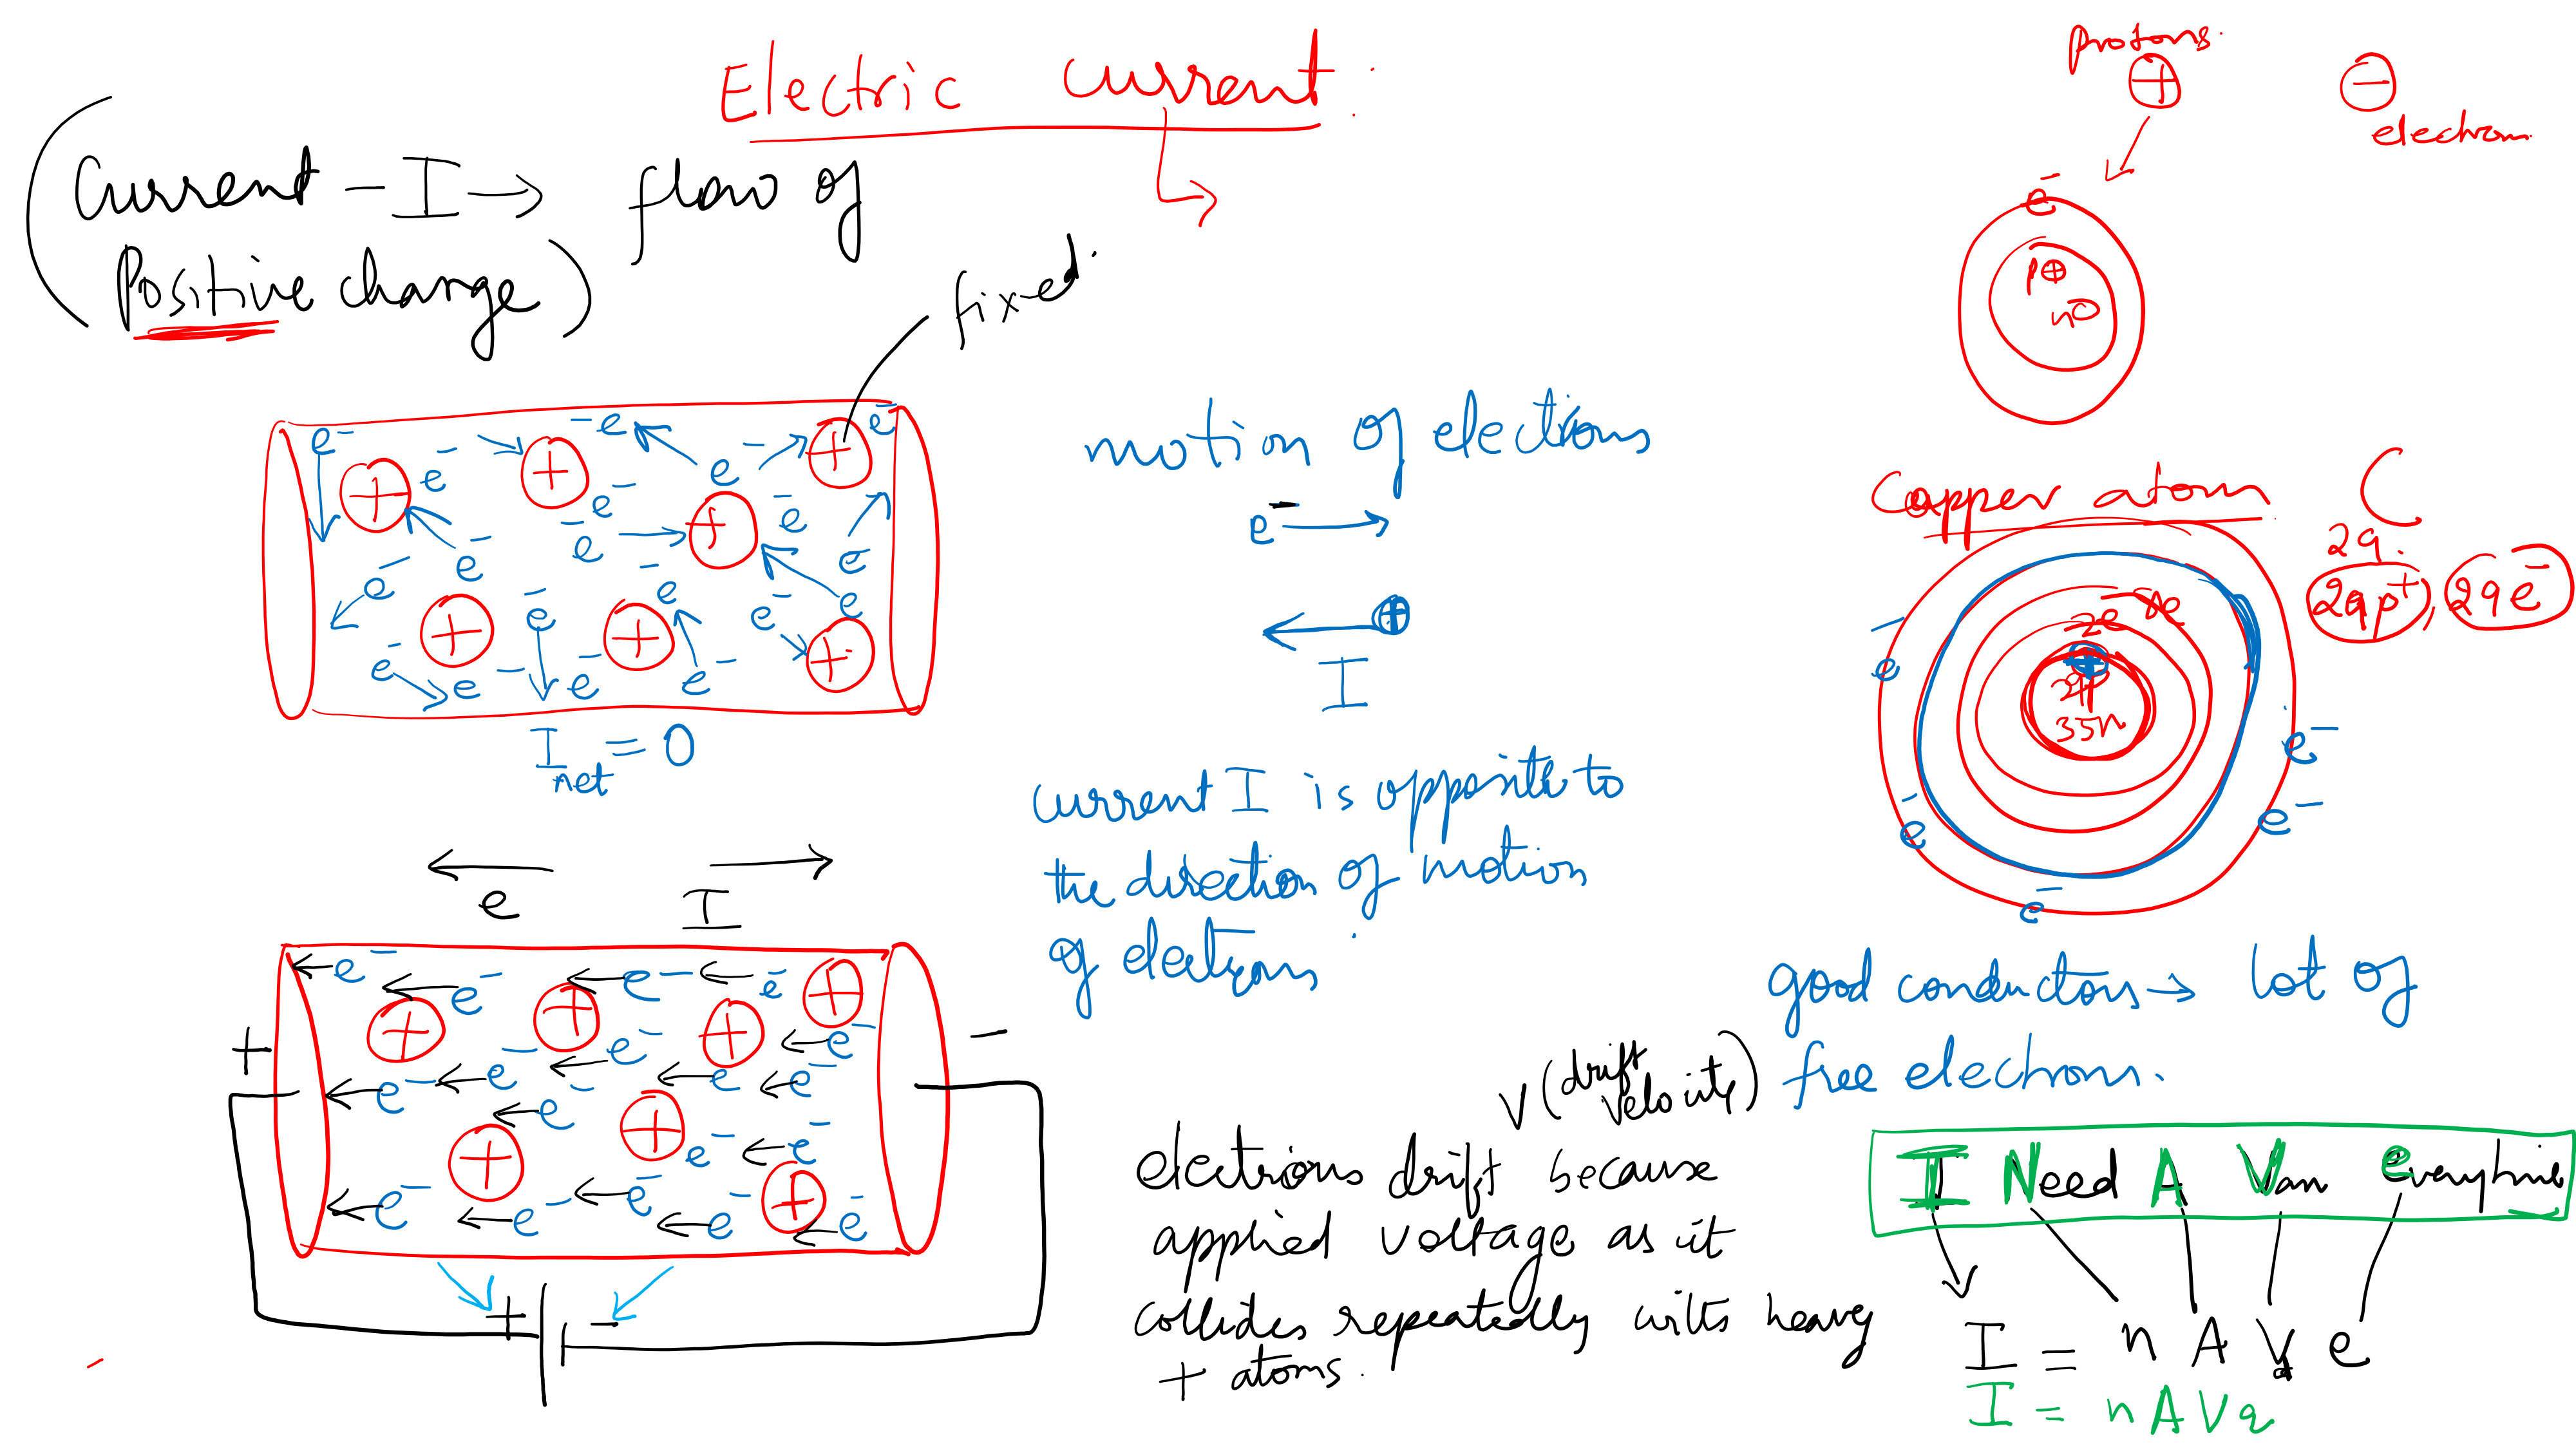 Electric current.
Current - I → flow of
Positive change
fixed.
e⁻ e⁻ + + e⁻ e⁻ + e⁻
I net = 0
motion of electrons
e⁻ →
← ⊕
I
current I is opposite to
the direction of motion
of electrons.
← e
I →
+ -
+ -
V (drift velocity)
electrons drift because
applied voltage as it
collides repeatedly with heavy
+ atoms.
protons.
+
-
electron
e⁻
p⊕
n○
Copper atom
29.
29p⁺, 29e⁻
2e 8e
35n
e⁻ e⁻
e⁻ e⁻
e⁻
good conductors → lot of
free electrons.
I Need A Van Everytime
I = n A Vd e
I = n A V q